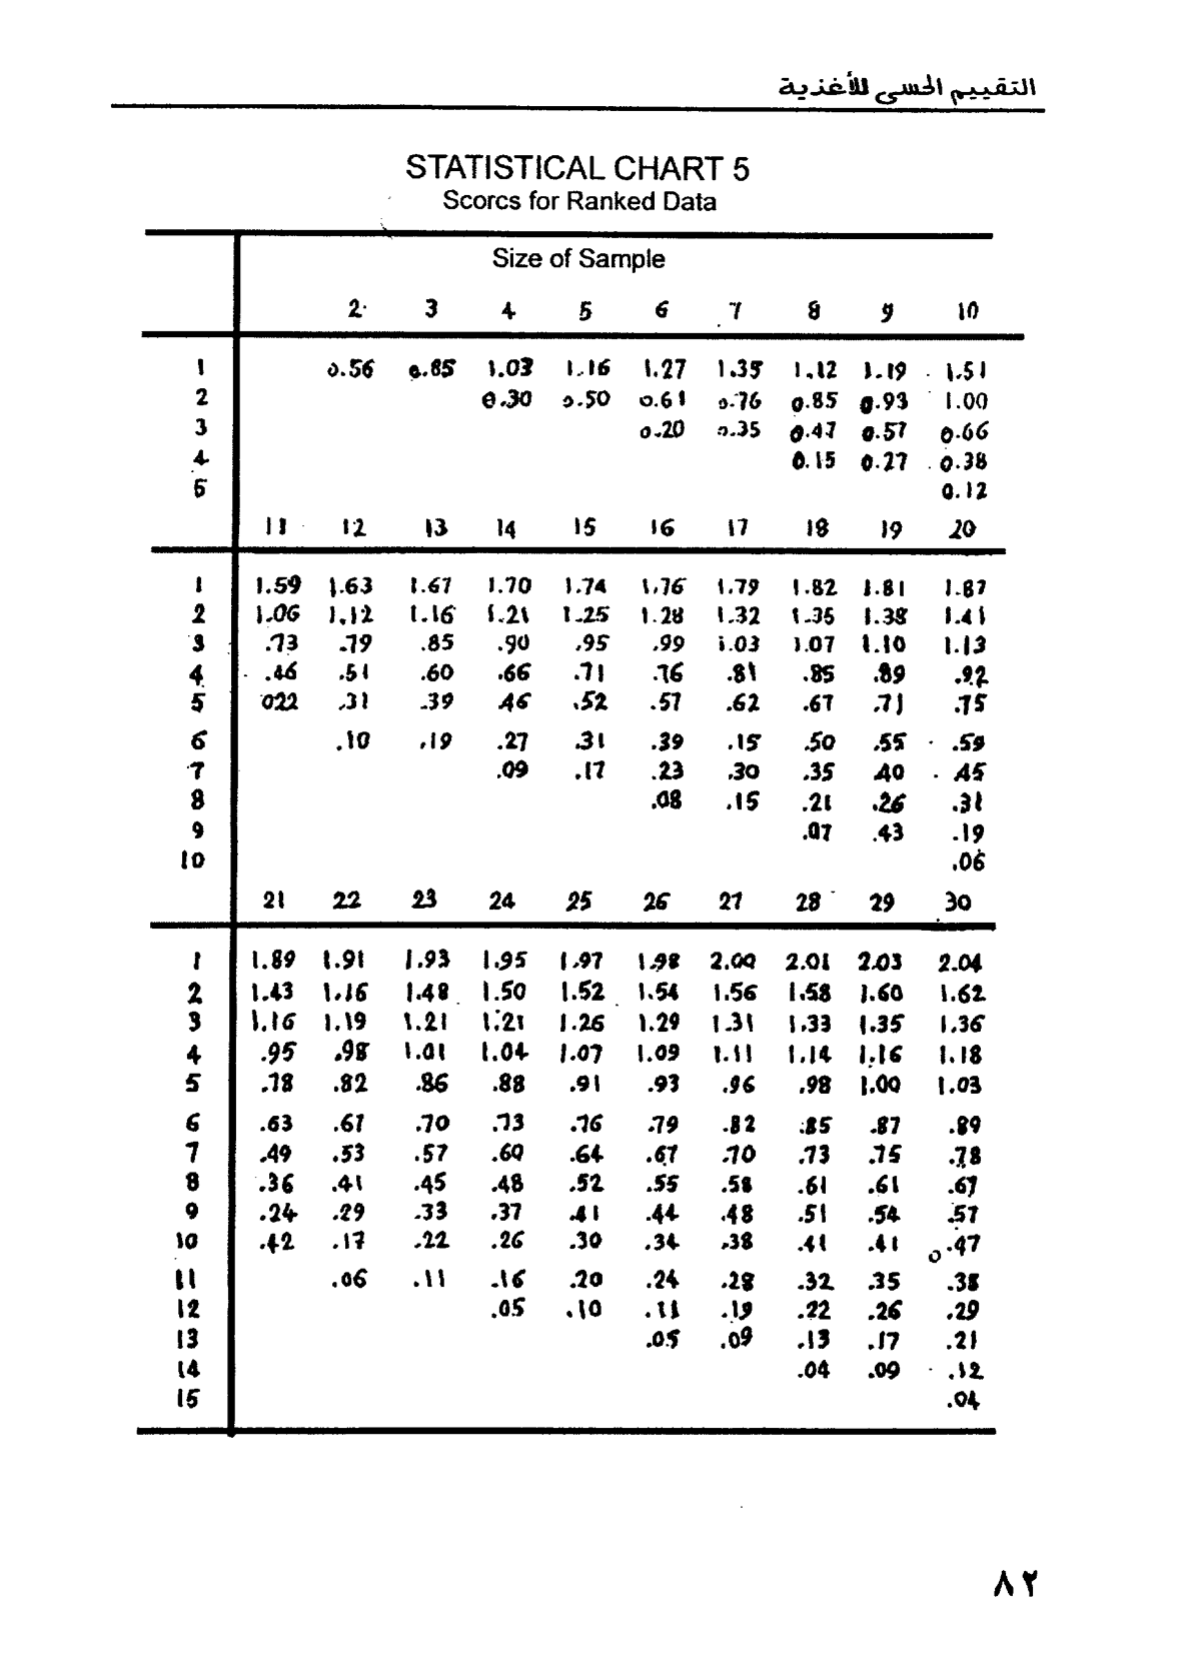 التقييم الحسى للأغذية
STATISTICAL CHART 5
Scorcs for Ranked Data
Size of Sample
2 3 4 5 6 7 8 9 10
1 0.56 0.85 1.03 1.16 1.27 1.35 1.12 1.19 1.51
2 0.30 0.50 0.61 0.76 0.85 0.93 1.00
3 0.20 0.35 0.47 0.57 0.66
4 0.15 0.27 0.38
5 0.12
11 12 13 14 15 16 17 18 19 20
1 1.59 1.63 1.67 1.70 1.74 1.76 1.79 1.82 1.81 1.87
2 1.06 1.12 1.16 1.21 1.25 1.28 1.32 1.35 1.38 1.41
3 .73 .79 .85 .90 .95 .99 1.03 1.07 1.10 1.13
4 .46 .51 .60 .66 .71 .76 .81 .85 .89 .92
5 022 .31 .39 .46 .52 .57 .62 .67 .71 .75
6 .10 .19 .27 .31 .39 .15 .50 .55 .59
7 .09 .17 .23 .30 .35 .40 .45
8 .08 .15 .21 .26 .31
9 .07 .43 .19
10 .06
21 22 23 24 25 26 27 28 29 30
1 1.89 1.91 1.93 1.95 1.97 1.98 2.00 2.01 2.03 2.04
2 1.43 1.16 1.48 1.50 1.52 1.54 1.56 1.58 1.60 1.62
3 1.16 1.19 1.21 1.21 1.26 1.29 1.31 1.33 1.35 1.36
4 .95 .98 1.01 1.04 1.07 1.09 1.11 1.14 1.16 1.18
5 .78 .82 .86 .88 .91 .93 .96 .98 1.00 1.03
6 .63 .67 .70 .73 .76 .79 .82 .85 .87 .89
7 .49 .53 .57 .60 .64 .67 .70 .73 .75 .78
8 .36 .41 .45 .48 .52 .55 .58 .61 .61 .67
9 .24 .29 .33 .37 .41 .44 .48 .51 .54 .57
10 .42 .17 .22 .26 .30 .34 .38 .41 .41 0.47
11 .06 .11 .16 .20 .24 .28 .32 .35 .38
12 .05 .10 .11 .19 .22 .26 .29
13 .05 .09 .13 .17 .21
14 .04 .09 .12
15 .04
٨٢